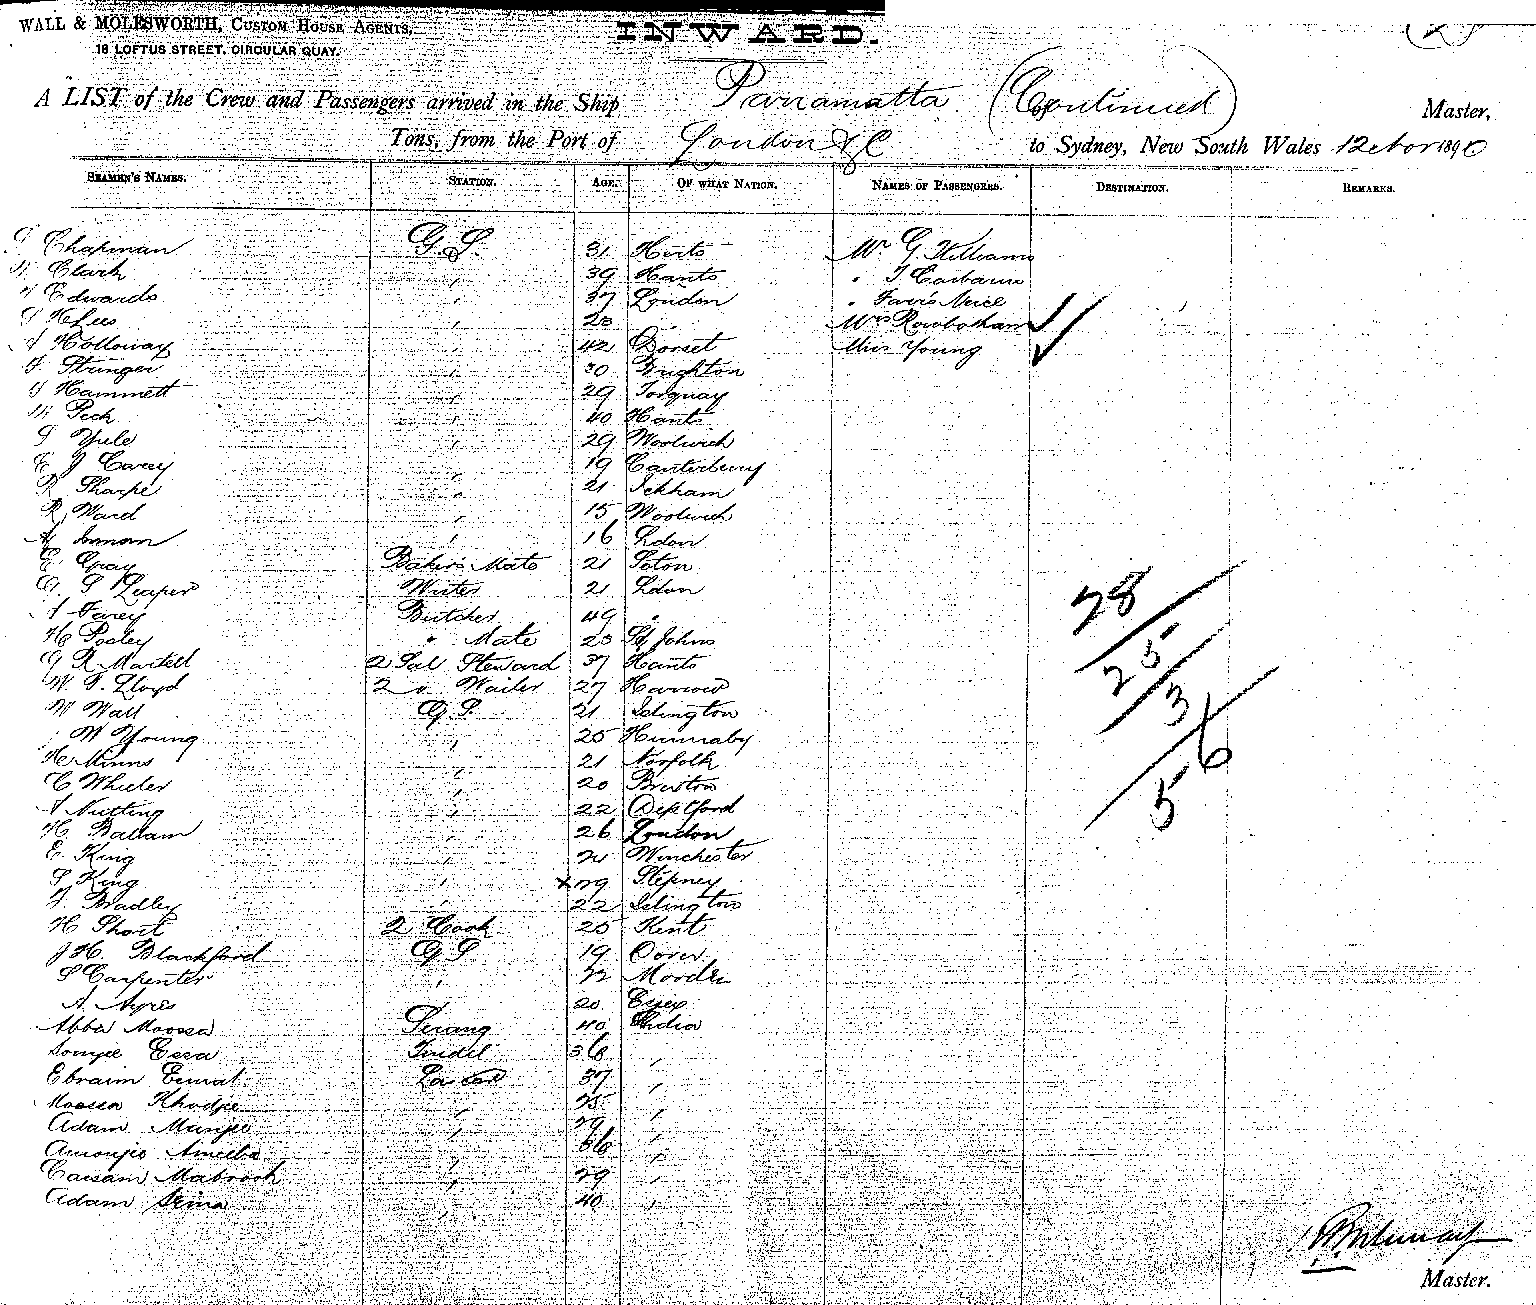 WALL & MOLESWORTH, CUSTOM HOUSE AGENTS,
16 LOFTUS STREET, CIRCULAR QUAY.
INWARD.
A LIST of the Crew and Passengers arrived in the Ship Parramatta (Continued) of Master,
Tons, from the Port of London &C to Sydney, New South Wales 12 Nov 1890
SEAMEN'S NAMES. STATION. AGE. OF WHAT NATION. NAMES OF PASSENGERS. DESTINATION. REMARKS.
Chapman G.S. 31 Herts Mr G. Williams
Clark " 39 Hants "
Edwards " 37 London "
Lees " 23 Mrs Rowbotham
Holloway " 42 Dorset Miss Young
Stringer " 30 Brighton
Hammett " 29 Torquay
Peck " 40 Hants
Yule " 29 Woolwich
E J Cavey " 19 Canterbury
R Sharpe " 21 Ickham
R Ward " 15 Woolwich
A Inman " 16 Ldon
E Gray Bakers Mate 21 Ston
G S Leaper Writer 21 Ldon
Farey Butcher 49 "
H Pooley " Mate 23 St Johns
G R Martell 2 Sal Steward 37 Hants
W. T. Lloyd 2 " Waiter 27 Harrow
W Wall G.S. 21 Islington
W Young " 25 Hunnaby
H Minns " 21 Norfolk
C Wheeler " 20 Brixton
A Nutting " 22 Deptford
H Ballam " 26 London
E. King " 21 Winchester
S King " x 29 Stepney
Bradley " 22 Islington
H Short 2 Cook 25 Kent
J H. Blackford G S 19 Dover
S Carpenter " 22 Morden
A Ayres 20 Essex
Abba Moossa Serang 40 India
Somjee Essa Tindel 36 "
Ebraim Esmal Lascar 37 "
Moossa Khodjee " 25 "
Adam Munjee " 29 "
Amoojee " 36 "
Cassam Mabrook " 29 "
Adam " 40 "
28
25
3
56
Master.